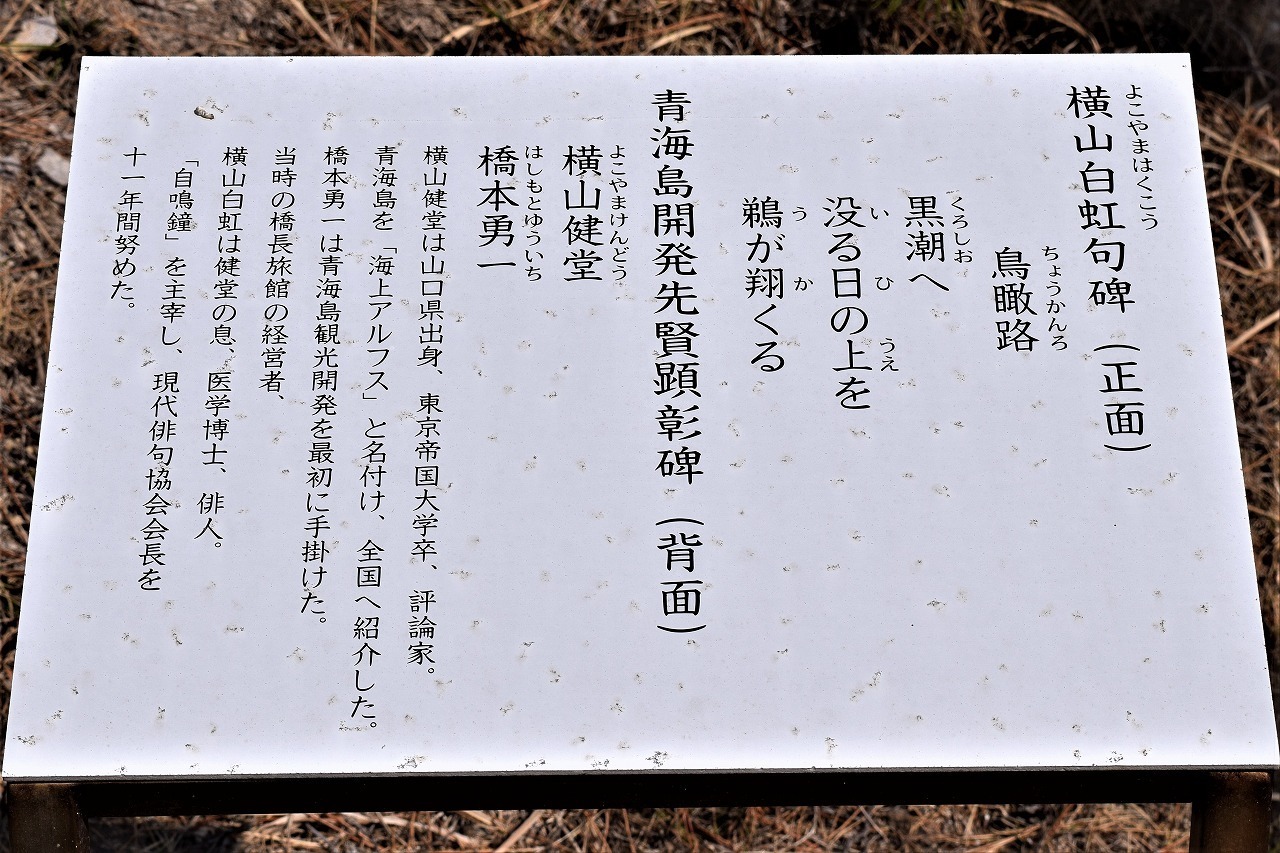 よこやまはくこう
横山白虹句碑（正面）
ちょうかんろ
鳥瞰路
くろしお
黒潮へ
い ひ うえ
没る日の上を
う か
鵜が翔くる
青海島開発先賢顕彰碑（背面）
よこやまけんどう
横山健堂
はしもとゆういち
橋本勇一
横山健堂は山口県出身、東京帝国大学卒、評論家。
青海島を「海上アルフス」と名付け、全国へ紹介した。
橋本勇一は青海島観光開発を最初に手掛けた。
当時の橋長旅館の経営者、
横山白虹は健堂の息、医学博士、俳人。
「自鳴鐘」を主幸し、現代俳句協会会長を
十一年間努めた。